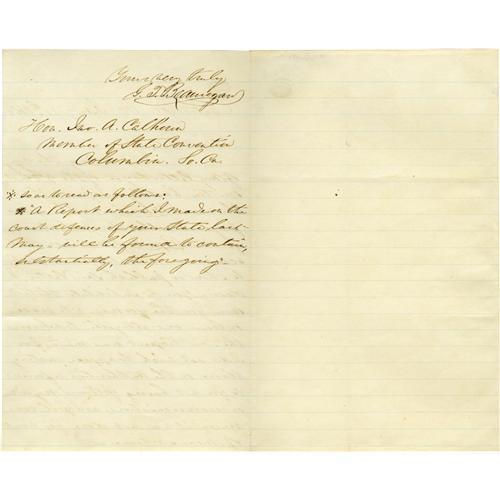 Yours very truly
G. T. Beauregard
Hon. Jno. A. Calhoun
Member of State Convention
Columbia. So. Ca.
* so as to read as follows:
* "A Report which I made on the
coast defenses of your State last
May - will be found to contain,
substantially, the foregoing -